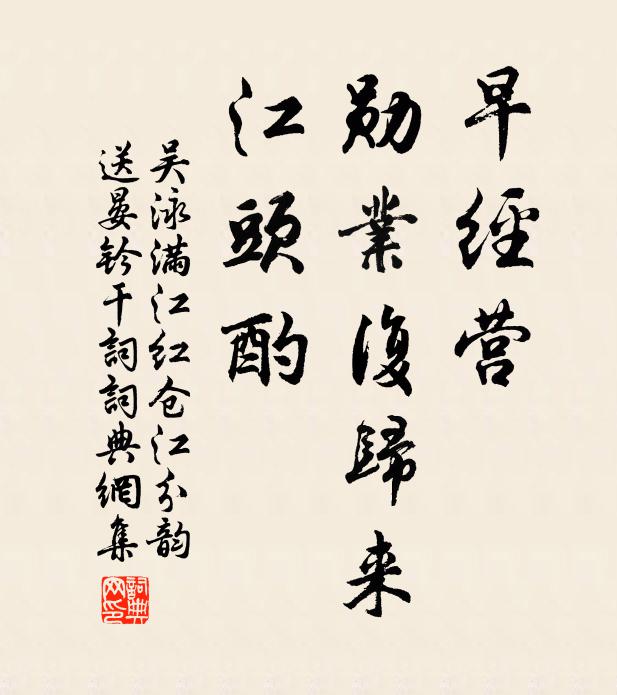 早經营
勛業復歸来
江頭酌
吴泳满江红仓江分韵
送晏鈐干詞詞典網集
詞典
网印